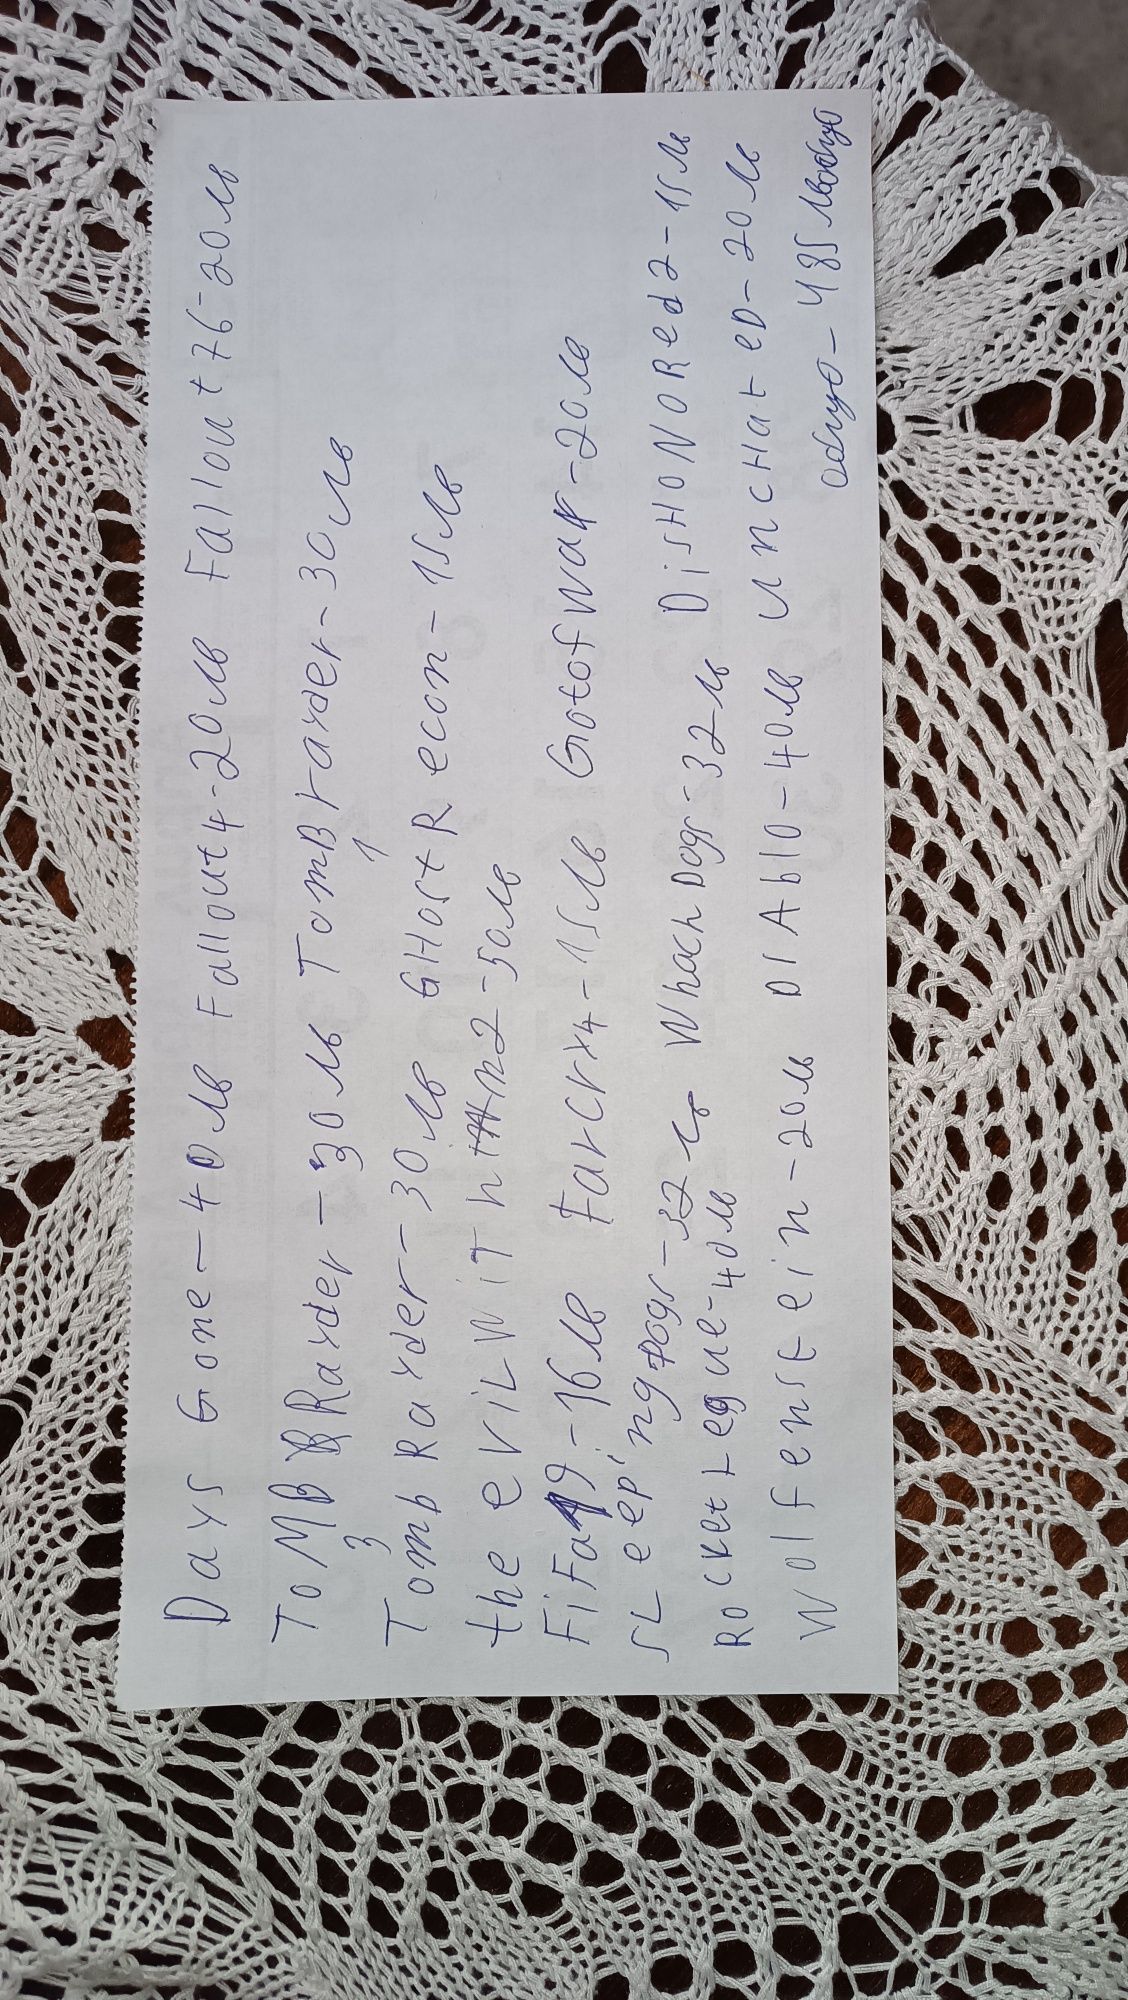 Days Gone - 40лв Fallout4-20лв Fallout76-20лв
ToMB Rayder - 30лв TomBrayder-30лв
3 1
Tomb Rayder-30лв GHost Recon-15лв
the eviL WiTHin2-50лв
FiFa19-16лв Farcrx4-15лв GotofWar-20лв
sLeepingDogs-32лв WhachDogs-32лв DisHONORed2-15лв
RocketLegue-40лв
Wolfenstein-20лв DIAblO-40лв UncHateD-20лв
общо-485лвобщо